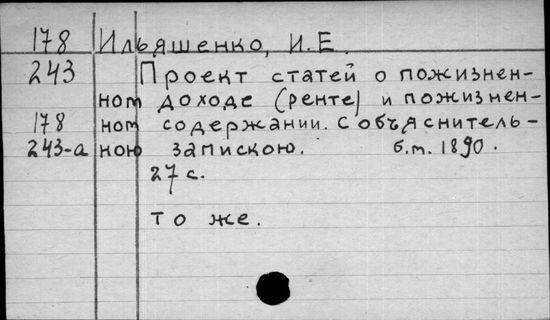 178 Ильяшенко, И.Е.
243 Проект статей о пожизнен-
ном доходе (ренте) и пожизнен-
178 ном содержании. С объяснитель-
243-а ною запискою. б.m. 1890.
27 с.
То же.